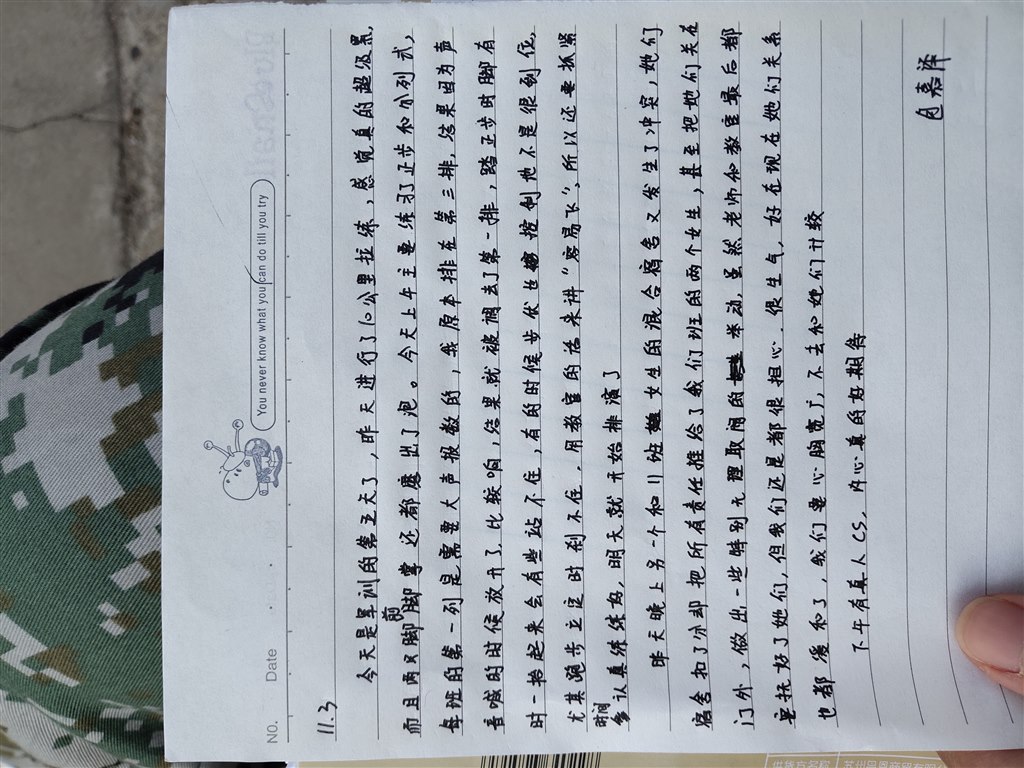 NO.
Date
You never know what you can do till you try
11.3
今天是军训的第五天了，昨天进行了10公里拉练，感觉真的超级累，
而且两只脚脚掌还都磨出了泡。今天上午主要练习了正步和分列式，
每班的第一列是需要大声报数的，我原本排在第三排，结果因为声
音喊的时候放开了，比较响，结果就被调去了第一排，踏正步时脚有
时一抬起来会有些站不住，有的时候步伐也控制地不是很到位，
尤其跑步立定时刹不住，用教官的话来讲“容易飞”，所以还要抓紧
时间认真练练妈，明天就开始排演了
昨天晚上另一个和11班女生的混合宿舍又发生了冲突，她们
宿舍扣了分却把所有责任推给了我们班的两个女生，甚至把她们关在
门外，做出一些特别无理取闹的举动，虽然老师和教官最后都
安抚好了她们，但我们还是都很担心、很生气，好在现在她们关系
也都缓和了，我们要心胸宽广，不去和她们计较
下午有真人CS，内心真的好期待
包嘉泽